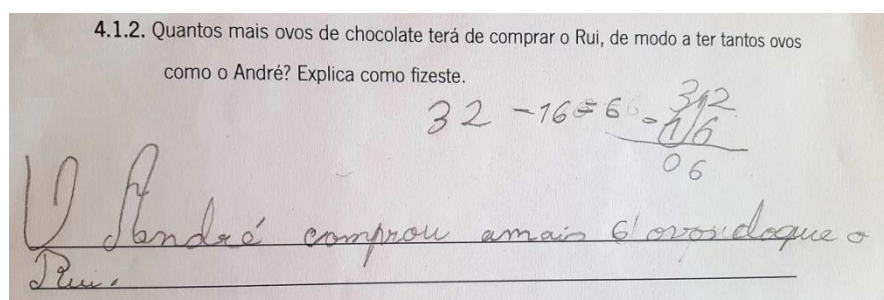 4.1.2. Quantos mais ovos de chocolate terá de comprar o Rui, de modo a ter tantos ovos
como o André? Explica como fizeste.
32 - 16 = 6
32
- 16
06
O André comprou amais 6 ovos doque o
Rui.